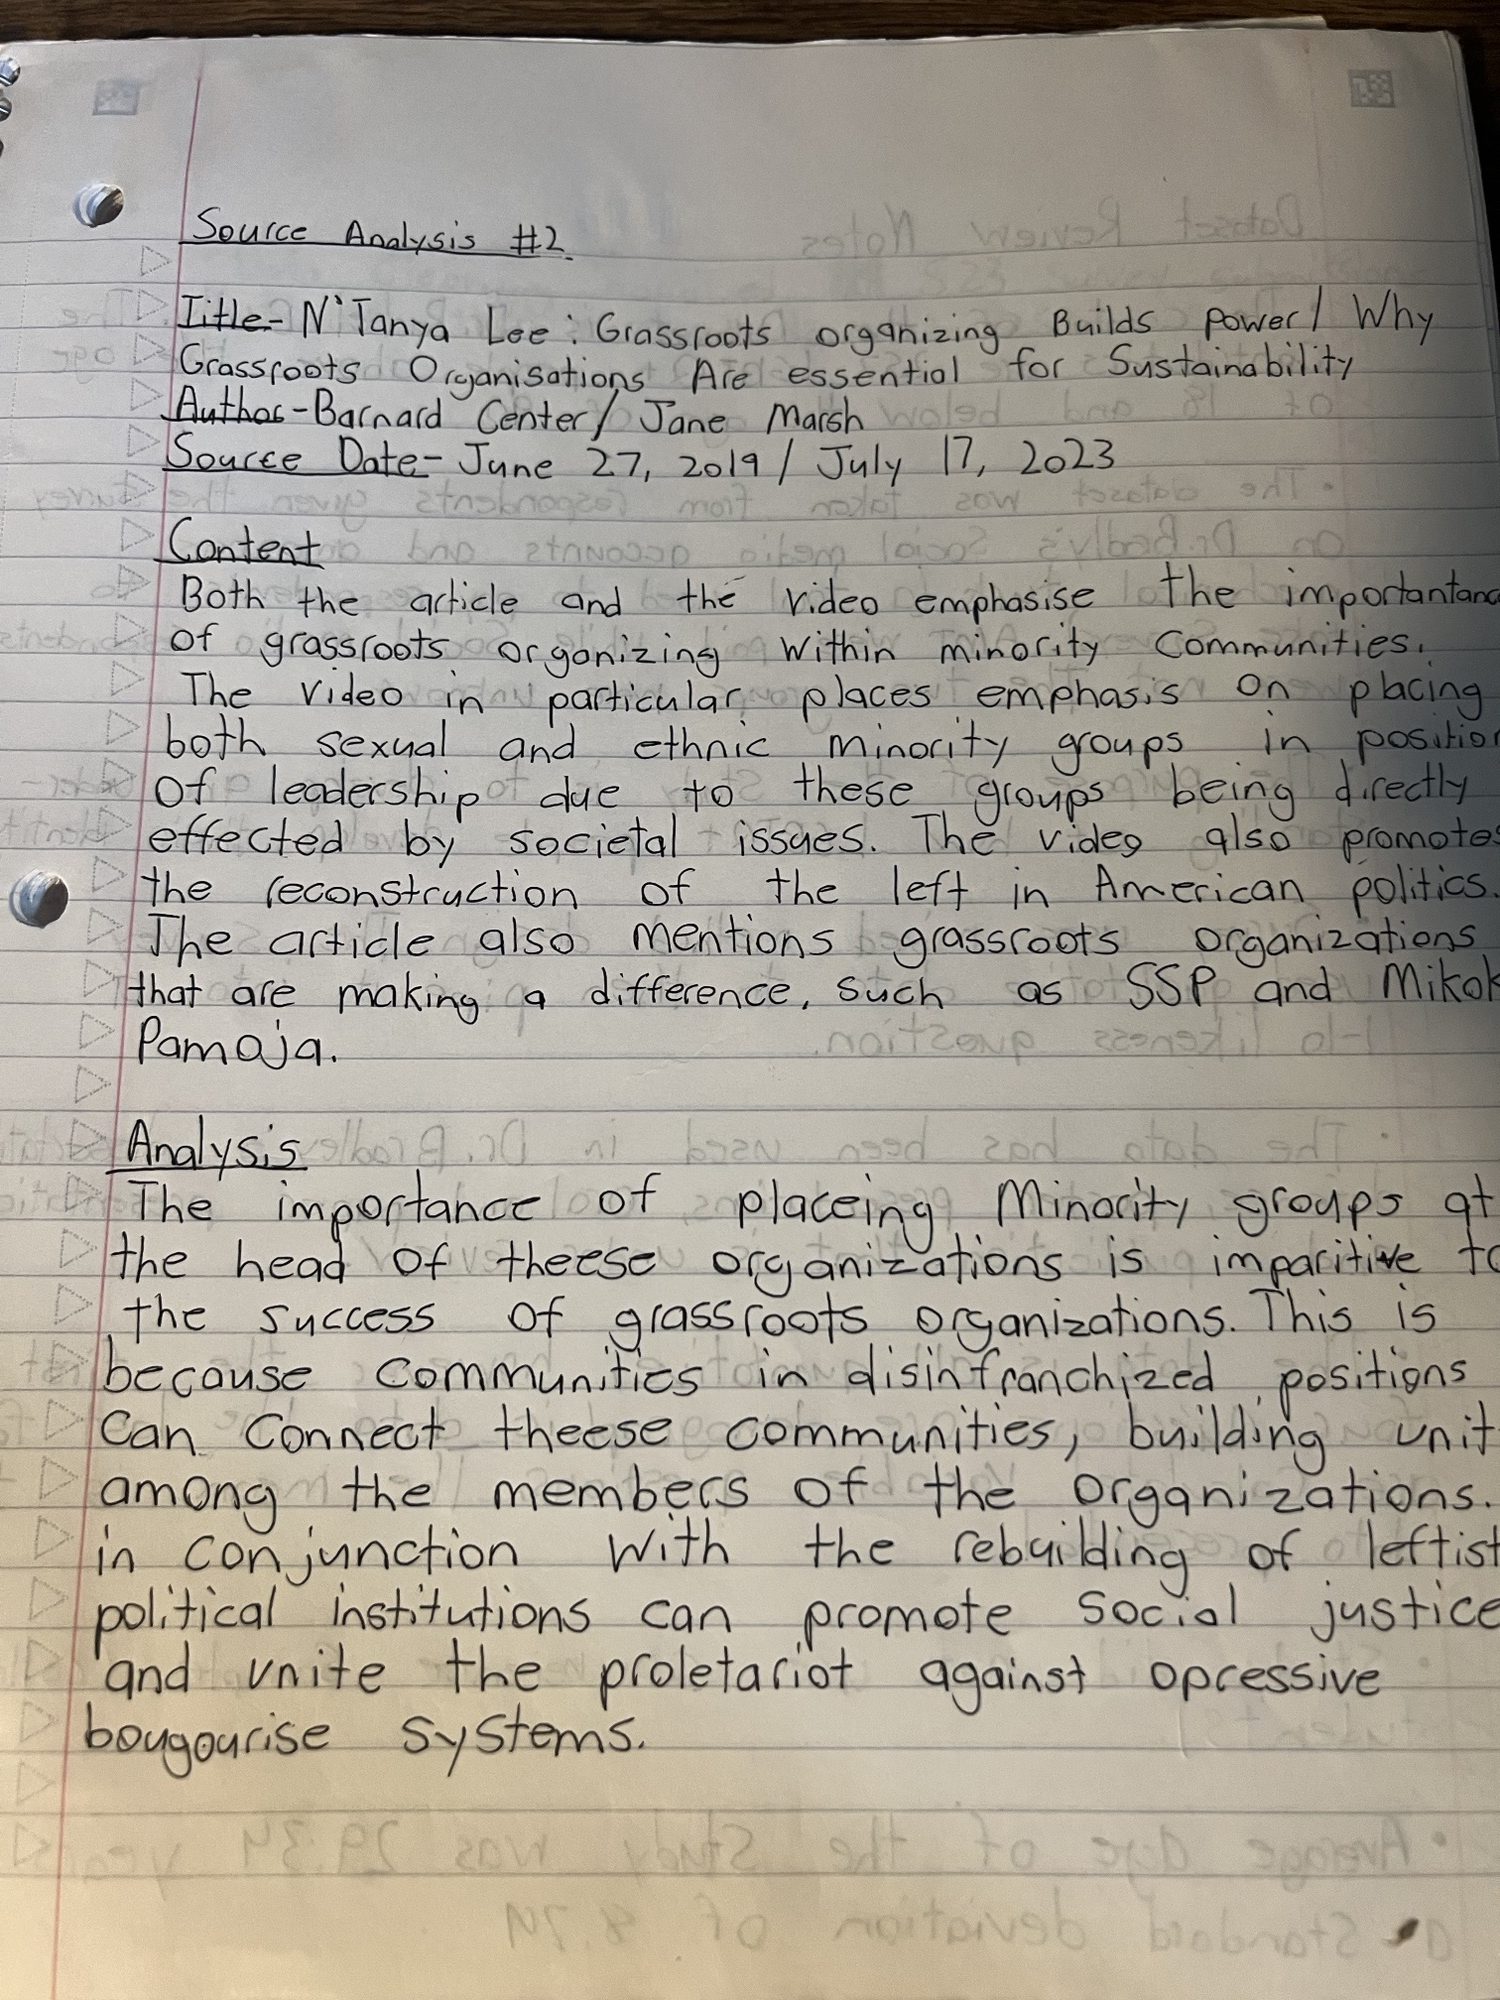 Source Analysis #2
Title- N'Tanya Lee: Grassroots organizing Builds power/ Why
Grassroots Organisations Are essential for Sustainability
Author-Barnard Center/ Jane Marsh
Source Date- June 27, 2019/ July 17, 2023
Content
Both the article and the video emphasise the importantanc
of grassroots organizing within minority Communities.
The video in particular places emphasis on placing
both sexual and ethnic minority groups in position
of leadership due to these groups being directly
effected by societal issues. The video also promotes
the reconstruction of the left in American politics.
The article also mentions grassroots organizations
that are making a difference, such as SSP and Mikok
Pamoja.
Analysis
The importance of placeing Minority groups at
the head of theese organizations is imparitive to
the success of grassroots organizations. This is
because communities in disinfranchized positions
Can Connect theese communities, building unit
among the members of the organizations.
in conjunction with the rebuilding of leftist
political institutions can promote social justice
and unite the proletariot against opressive
bougourise systems.